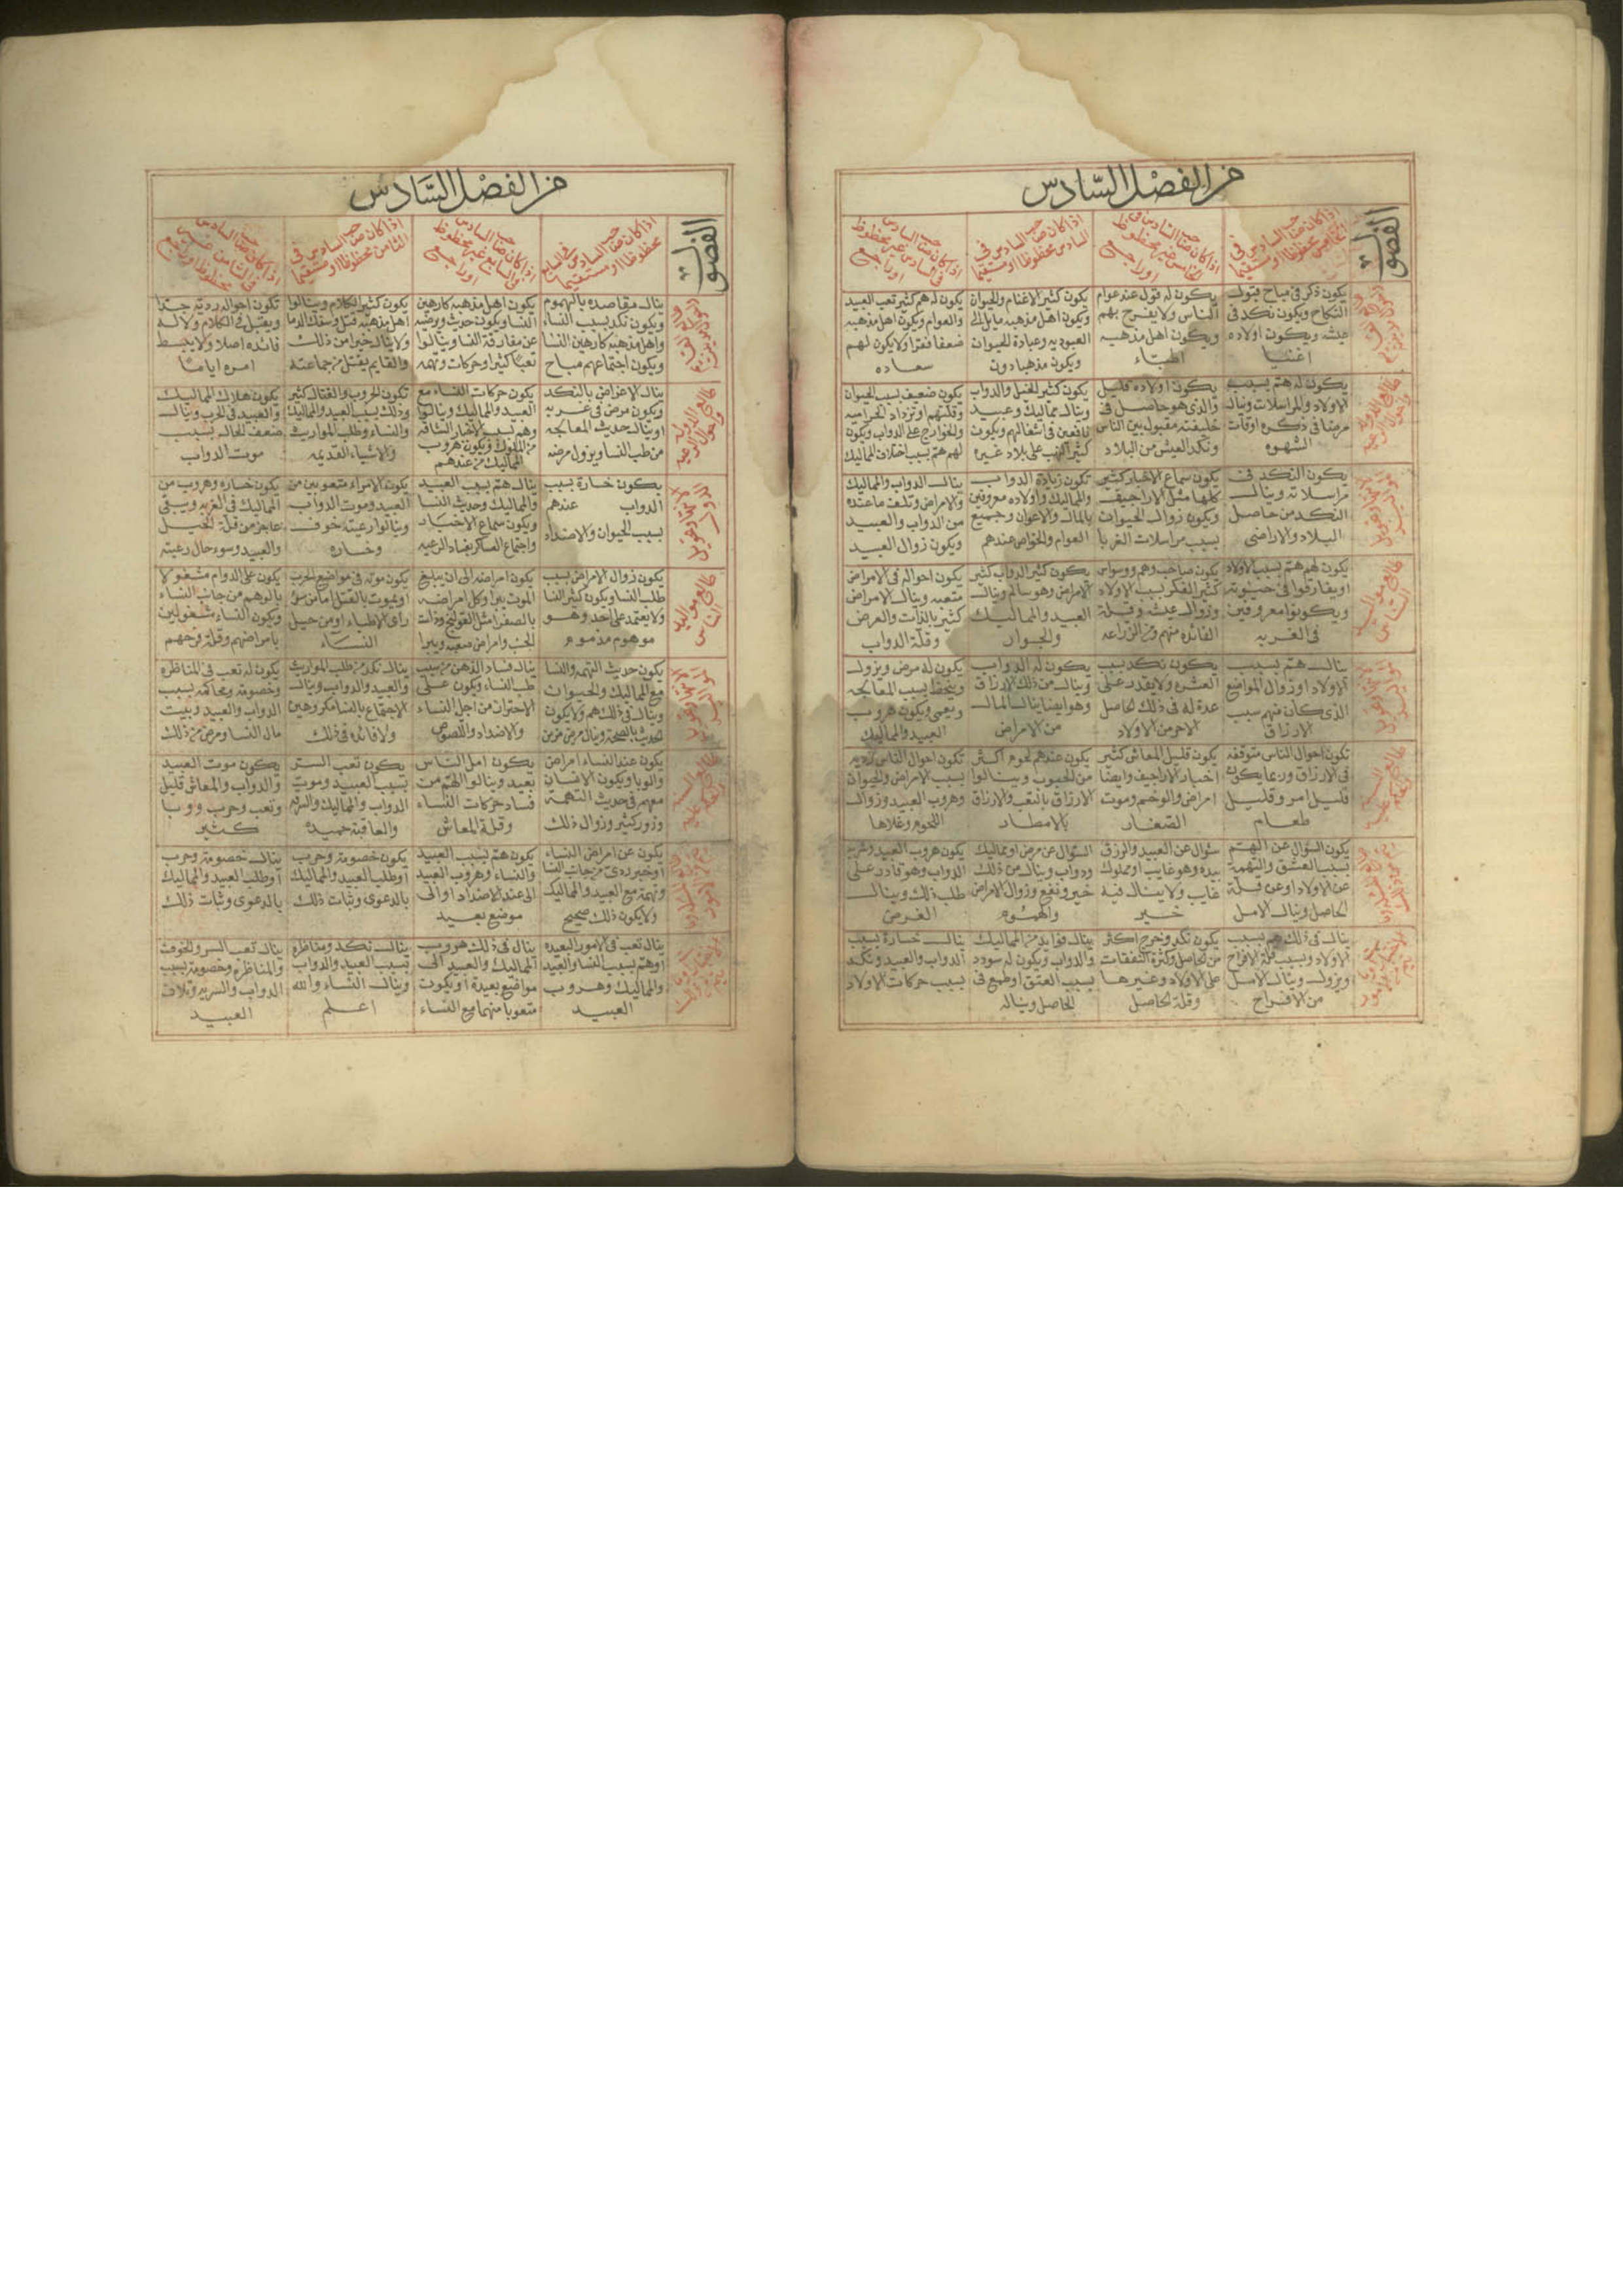 من الفصل السادس
الفصول
اذا كان صاحب السادس فى
الخامس محظوظا او مستقيما
اذا كان صاحب السادس فى
الخامس غير محظوظ
او راجع
اذا كان صاحب السادس فى
السادس محظوظا او مستقيما
اذا كان صاحب السادس
فى السادس غير محظوظ
او راجع
يكون ذكر فى مباح قبول
النكاح ويكون نكد فى
عيشه ويكون اولاده
اغنيا
يكون له قول عند عوام
الناس ولا يفرح بهم
ويكون اهل مذهبه
اطباء
يكون كثير الاغنام والحيوان
ويكون اهل مذهبه مايل الى
العبوديه وعبادة الحيوان
ويكون مذهبا دون
يكون له هم كثير تعب العبيد
والعوام ويكون اهل مذهبه
ضعفا فقرا ولا يكون لهم
سعاده
طالع الدوله
واحوال الرعيه
يكون له هم بسبب
الاولاد والمراسلات وينال
مرضا فى ذكره اوقات
الشهوه
يكون اولاده قليل
والذى هو حاصل فى
خليفته مقبول بين الناس
ونكد العيش من البلاد
يكون كثير الخيل والدواب
وينال مماليك وعبيد
نافعين فى اشغالهم ويكون
كثير النهب على بلاد غيره
يكون ضعيف بسبب الحيوان
وقلتهم او تزداد الحراميه
والخوارج على الدواب ويكون
لهم هم بسبب اختلاف المماليك
يكون النكد فى
مراسلاته وينال
النكد من حاصل
البلاد والاراضى
يكون سماع الاخبار كثير
كلها مثل الاراجيف
ويكون زوال الحيوان
بسبب مراسلات الغربا
تكون زيادة الدواب
والمماليك واولاده معروفين
بالمال والاعوان وجميع
العوام والخواص عندهم
ينال الدواب والمماليك
والامراض وتلف ما عنده
من الدواب والعبيد
ويكون زوال العبيد
يكون لهم هم بسبب الاولاد
او يفارقوا فى حيوته
ويكونوا معروفين
فى الغربه
يكون صاحب وهم ووسواس
كثير الفكر بسبب الاولاد
وزوال عيشه وقلة
الفائده منهم ومن الزراعه
يكون كثير الدواب كثير
الامراض وهو سالم وينال
العبيد والمماليك
والجوار
يكون احواله فى الامراض
متعبه وينال الامراض
كثير بالذات والعرض
وقلة الدواب
ينال هم بسبب
الاولاد او زوال المواضع
الذى كان منهم سبب
الارزاق
يكون نكد بسبب
العشره ولا يقدر على
عدة له فى ذلك الحاصل
الاجر من الاولاد
يكون له الدواب
وينال من ذلك الارزاق
وهو ايضا ينال المال
من الامراض
يكون له مرض ويزول
ويتحفظ بسبب المعالجه
ويعمى ويكون هروب
العبيد والمماليك
تكون احوال الناس متوقفه
فى الارزاق وربما يكونه
قليل امر وقليل
طعام
يكون قليل المعاش كثير
اخبار الاراجيف وايضا
امراض والوخم وموت
الصغار
يكون عندهم لحوم اكثر
من الحبوب وينالوا
الارزاق بالتعب والارزاق
بالامطار
تكون احوال الناس رديه
بسبب الامراض والحيوان
وهروب العبيد وزوال
اللحوم وغلاها
يكون السؤال عن الهم
بسبب العشق والتهمة
عن الاولاد او عن قلة
الحاصل وينال الامل
سؤال عن العبيد والرزق
بيده وهو غايب او مملوك
غايب ولا ينال فيه
خير
السؤال عن مرض او مماليك
ودواب وينال من ذلك
خير ونفع وزوال الامراض
والهموم
يكون هروب العبيد وشرى
الدواب وهو قادر على
طلب ذلك وينال
الغرض
ينال فى ذلك هم بسبب
الاولاد وبسبب قلة الافراح
ويزول وينال الامل
من الافراح
يكون نكد وخرج اكثر
من الحاصل وكثرة النفقات
على الاولاد وغيرها
وقلة الحاصل
ينال فوايد من المماليك
والدواب ويكون له سودد
بسبب العتق او طمع فى
الحاصل ويناله
ينال خساره بسبب
الدواب والعبيد ونكد
بسبب حركات الاولاد
من الفصل السادس
الفصول
اذا كان صاحب السادس فى السابع
محظوظا او مستقيما
اذا كان صاحب السادس
فى السابع غير محظوظ
او راجع
اذا كان صاحب السادس فى
الثامن محظوظا او مستقيما
اذا كان صاحب السادس
ينال مقاصده بالهموم
ويكون نكد بسبب النساء
واهل مذهبه كارهين النسا
ويكون اجتماعهم مباح
يكون اهل مذهبه كارهين
النسا ويكون حديث ورضيه
عن مفارقة النسا وينالوا
تعبا كثيرا وحركات وتهمه
يكون كثير الكلام وينالوا
اهل مذهبه قتل وسفك الدما
ولا ينال خيرا من ذلك
والقايم يقتل من جماعته
تكون احواله رديه جدا
ويقتل فى الكلام ولا له
فائده اصلا ولا ينبسط
امره اياما
طالع الدوله
واحوال الرعيه
ينال الاغراض بالنكد
ويكون مرض فى غربه
او ينال حديث المعالجه
من طب النسا ويزول مرضه
يكون حركات النساء مع
العبيد والمماليك وينالوا
وهم بسبب الاخبار الشاقه
من الملوك ويكون هروب
المماليك من عندهم
تكون الحروب والقتال كثير
وذلك بسبب العبيد والمماليك
والنساء وطلب المواريث
والاشياء القديمه
يكون هلاك المماليك
والعبيد فى الحرب وينال
ضعف الحال بسبب
موت الدواب
يكون خساره بسبب
الدواب عندهم
بسبب الحيوان والاضداد
ينال هم بسبب العبيد
والمماليك وحديث النسا
ويكون سماع الاخبار
واجتماع العساكر بفساد الرعيه
يكون الامراء متعوبين من
العبيد وموت الدواب
وينالوا رعيته خوف
وخساره
يكون خساره وهروب من
المماليك فى الغربه ويبقى
عاجز من قلة الخيل
والعبيد وسوء حال رعيته
يكون زوال الامراض بسبب
طلب النسا ويكون كثير النسا
ولا يعتمد على احد وهو
موهوم مذموم
يكون امراضه الى ان يبلغ
الموت يبرا وكل امراضه
بالصفرا مثل القولنج وذات
الجنب وامراض صعبه ويبرا
يكون موته فى مواضع الحرب
او يموت بالقتل اما من سوء
راى الاطباء او من حيل
النساء
يكون على الدوام مشغولا
بالوهم من جانب النساء
ويكون النساء مشغولين
بامراضهم وقلة فرجهم
يكون حديث التهمه والنسا
مع المماليك والحيوان
وينال فى ذلك هم ولا يكون
الحديث بالصحه وينال مرض مزمن
ينال فساد الذهن من سبب
طب النساء ويكون على
الاحتراز من اجل النساء
والاضداد واللصوص
ينال نكد من طلب المواريث
والعبيد والدواب وينال
الاجتماع بالنسا مكروهين
ولا فائده فى ذلك
يكون له تعب فى المناظره
وخصومة ومحاكمه بسبب
الدواب والعبيد وبيت
مال النسا ومرض من ذلك
يكون عند النساء امراض
والوبا ويكون الانسان
معهم فى حديث التهمة
وزور كثير وزوال ذلك
يكون امل الناس
بعيد وينالوا الهم من
فساد حركات النساء
وقلة المعاش
يكون تعب الستر
بسبب العبيد وموت
الدواب والمماليك والسرقه
والعاقبة حميده
يكون موت العبيد
والدواب والمعاش قليل
وتعب وحرب ووبا
كثير
يكون عن امراض النساء
او خبر ردى من جانب النسا
وتهمة مع العبيد والمماليك
ولا يكون ذلك صحيح
يكون هم بسبب العبيد
والنساء وهروب العبيد
الى عند الاضداد او الى
موضع بعيد
يكون خصومة وحرب
او طلب العبيد والمماليك
بالدعوى وثبات ذلك
ينال خصومة وحرب
او طلب العبيد والمماليك
بالدعوى وثبات ذلك
ينال تعب فى الامور البعيده
او هم بسبب النسا والعبيد
والمماليك وهروب
العبيد
ينال فى ذلك هروب
المماليك والعبيد الى
مواضع بعيدة او يكون
متعوبا منهما مع النساء
ينال نكد ومناظره
بسبب العبيد والدواب
وينال النساء والله
اعلم
ينال تعب السر والخوف
والمناظره وخصومة بسبب
الدواب والسريه وتلاف
العبيد